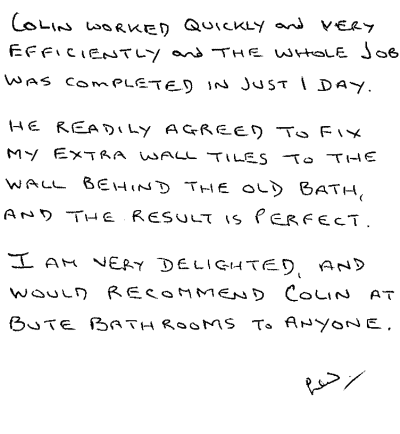 COLIN WORKED QUICKLY and VERY
EFFICIENTLY and THE WHOLE JOB
WAS COMPLETED IN JUST 1 DAY.
HE READILY AGREED TO FIX
MY EXTRA WALL TILES TO THE
WALL BEHIND THE OLD BATH,
AND THE RESULT IS PERFECT.
I AM VERY DELIGHTED, AND
WOULD RECOMMEND COLIN AT
BUTE BATHROOMS TO ANYONE.